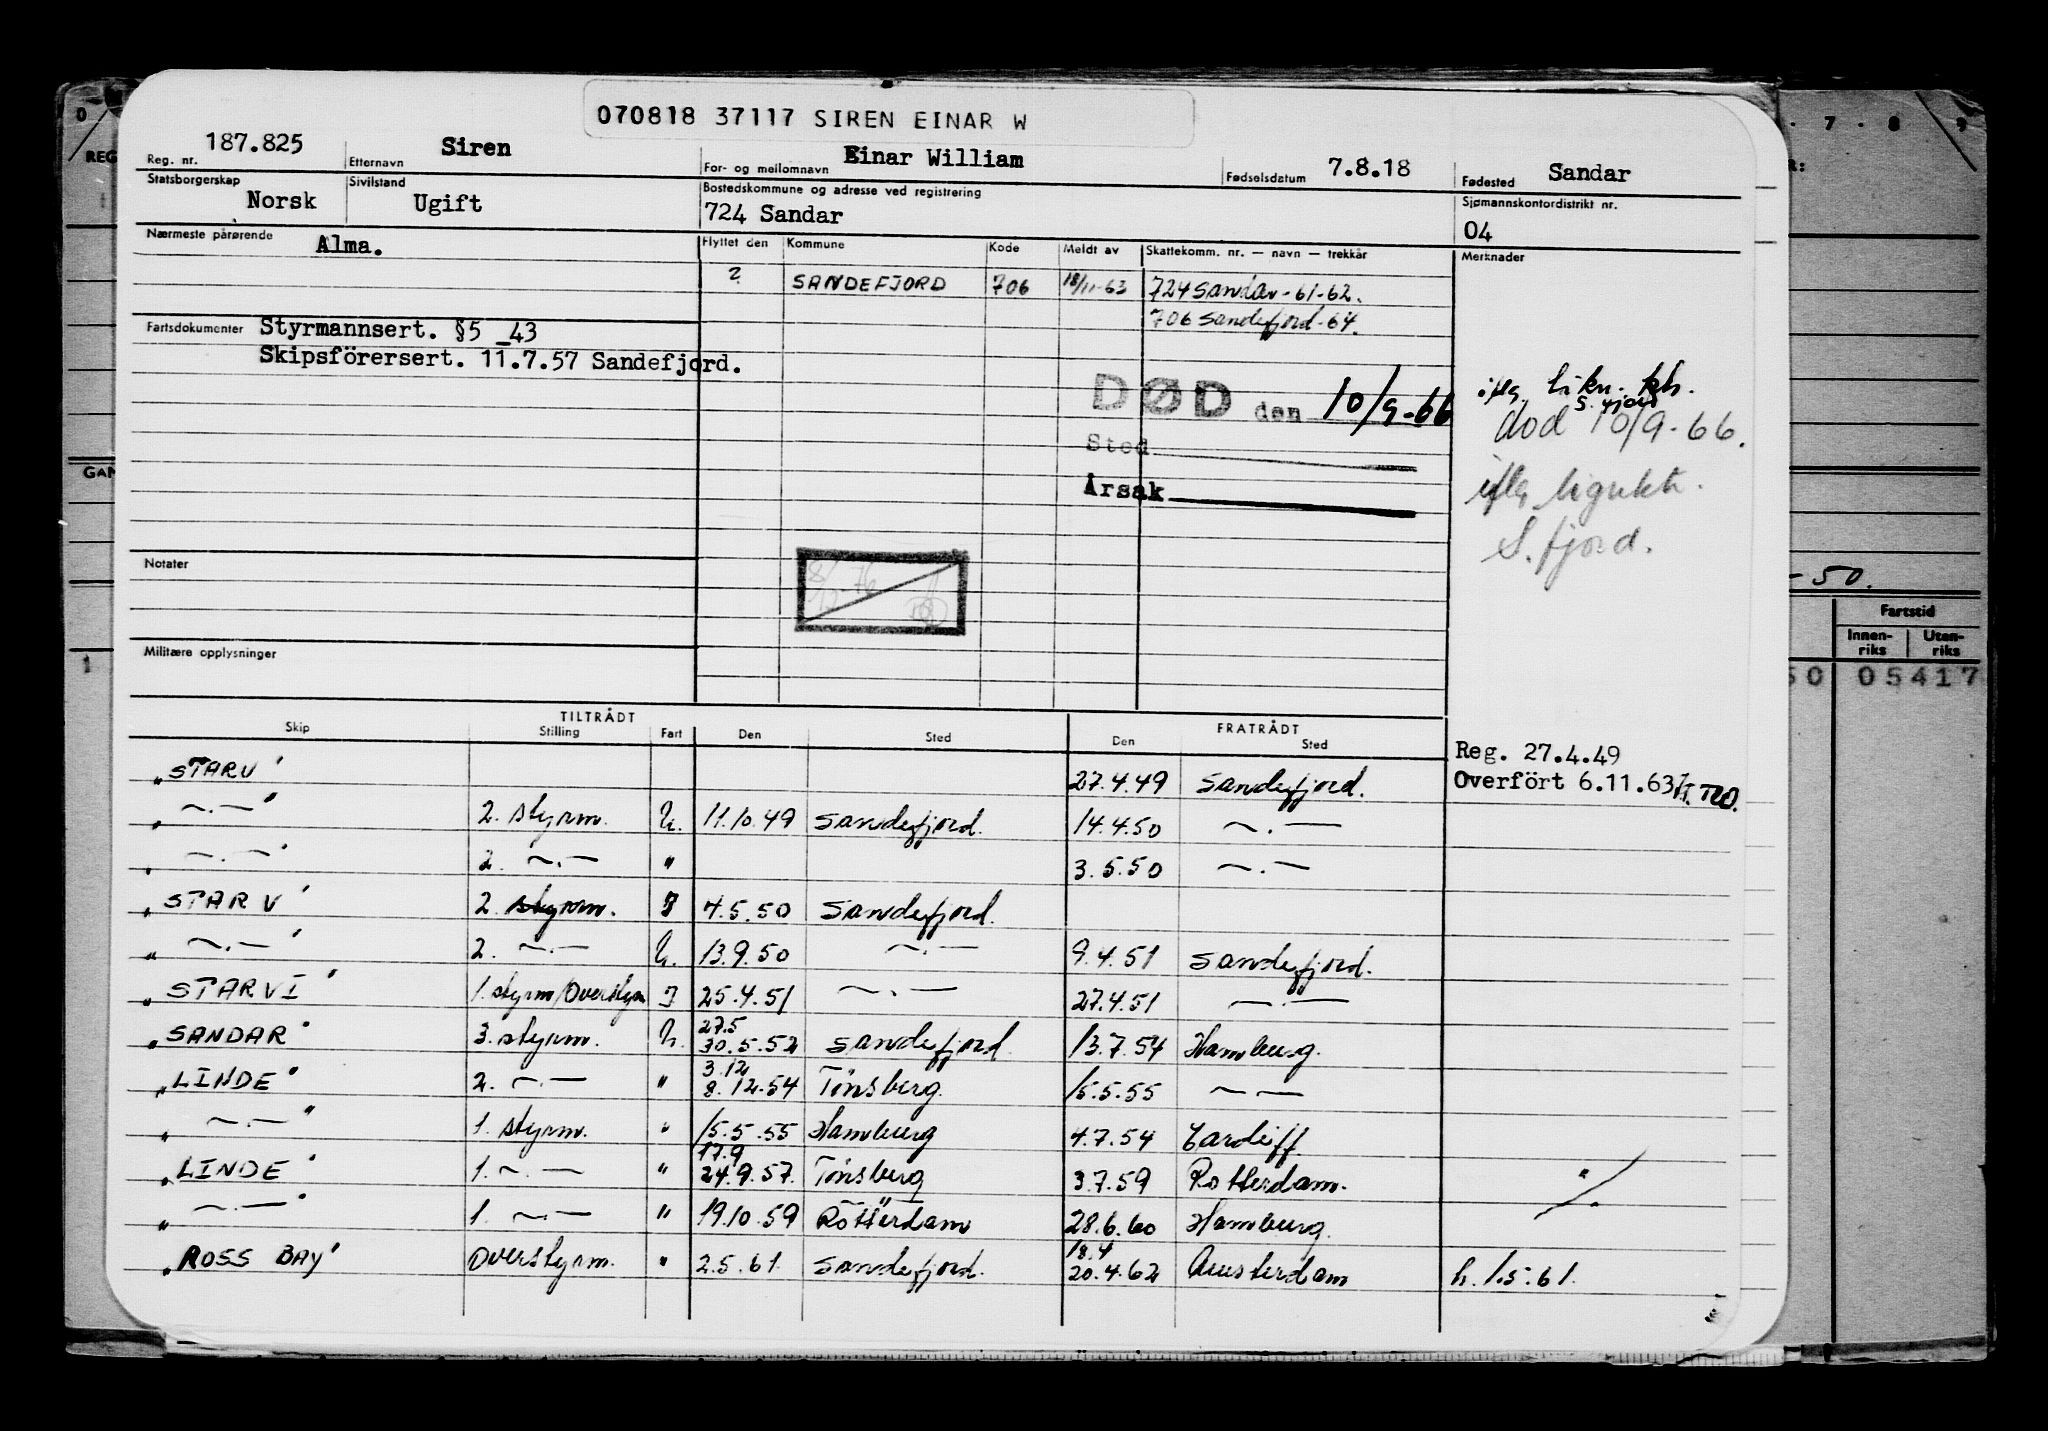 070818 37117 SIREN EINAR W
187.825 Siren Einar William 7.8.18 Sandar
Reg. nr. Etternavn For- og mellomnavn Fødselsdatum Fødested
Statsborgerskap Sivilstand Bostedskommune og adresse ved registrering Sjømannskontordistrikt nr.
Norsk Ugift 724 Sandar 04
Nærmeste pårørende Alma. Flyttet den Kommune Kode Meldt av Skattekomm. nr. — navn — trekkår Merknader
? SANDEFJORD 706 18/11-63 724 Sandar-61-62.
706 Sandefjord-64.
Fartsdokumenter Styrmannsert. §5 _43
Skipsförersert. 11.7.57 Sandefjord.
DØD den 10/9-66
Sted
Årsak
iflg. likn. kt.
S.fjord
død 10/9-66.
iflg. lignkt.
S.fjord.
Notater
Militære opplysninger
TILTRÅDT FRATRÅDT
Skip Stilling Fart Den Sted Den Sted
Reg. 27.4.49
Overfört 6.11.63
„STAR V" 27.4.49 Sandefjord.
„ ~.— " 2. styrm. U. 11.10.49 Sandefjord. 14.4.50 ~.—
„ ~.— " 2. ~.— " 3.5.50 ~.—
„STAR V" 2. styrm. I 4.5.50 Sandefjord.
„ ~.— " 2. ~.— U. 13.9.50 ~.— 9.4.51 Sandefjord.
„STAR VI" 1. styrm/Overstyrm I 25.4.51 ~.— 27.4.51 ~.—
„SANDAR" 3. styrm. U. 27.5 30.5.52 Sandefjord 13.7.54 Hamburg.
„LINDE" 2. ~.— " 3.12 8.12.54 Tönsberg. 15.5.55 ~ —
„ ~.— " 1. styrm. " 15.5.55 Hamburg 4.7.54 Cardiff.
„LINDE" 1. ~.— " 17.9 24.9.57. Tönsberg 3.7.59 Rotterdam.
„ ~.— " 1. ~.— " 19.10.59 Rotterdam 28.6.60 Hamburg.
„ROSS BAY" Overstyrm. " 2.5.61 Sandefjord. 18.4 20.4.62 Amsterdam h. 1.5.61.
-50.
Fartstid
Innen-
riks
Uten-
riks
50 05417